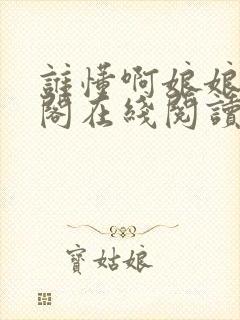 誰懂啊娘娘
閣在綫閱讀
寶姑娘